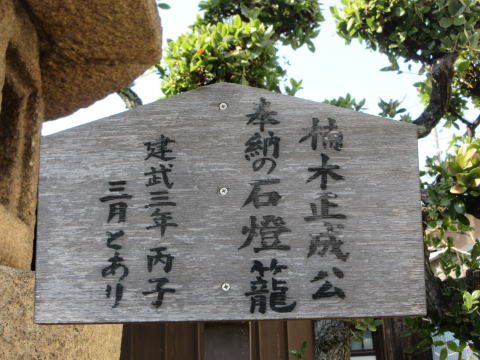 楠木正成公
奉納の石燈籠
建武三年 丙子
三月とあり